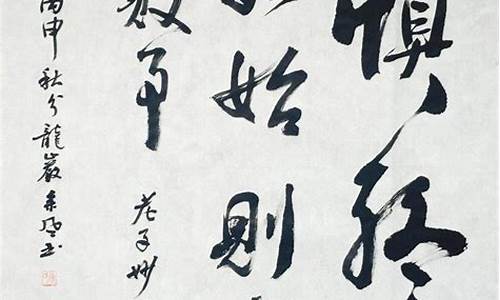 慎終
如始則
敗事 老子妙
丙申秋分龍巖